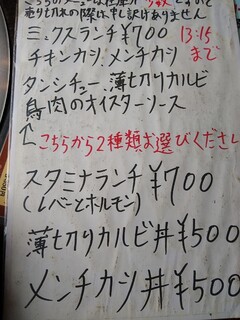 こちらのメニューは在庫が
売り切れの際は申し訳ありません
ミックスランチ¥700 13:15
チキンカツ、メンチカツ まで
タンシチュー、薄切りカルビ
鳥肉のオイスターソース
↑こちらから2種類お選びください
スタミナランチ¥700
(レバーとホルモン)
薄切りカルビ丼¥500
メンチカツ丼¥500